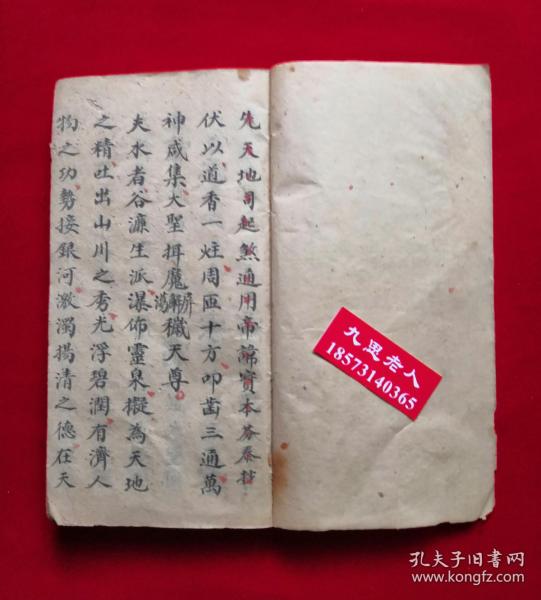 先天地司起煞通用帝
伏以道香一炷周匝十方叩齒三通萬
神咸集大聖揖魔解穢天尊
夫水者谷濂生派瀑佈靈泉擬為天地
之精吐出山川之秀光浮碧澗有濟人
物之功勢接銀河激濁揚清之德在天
九思老人
18573140365
孔夫子旧书网
www.kongfz.com